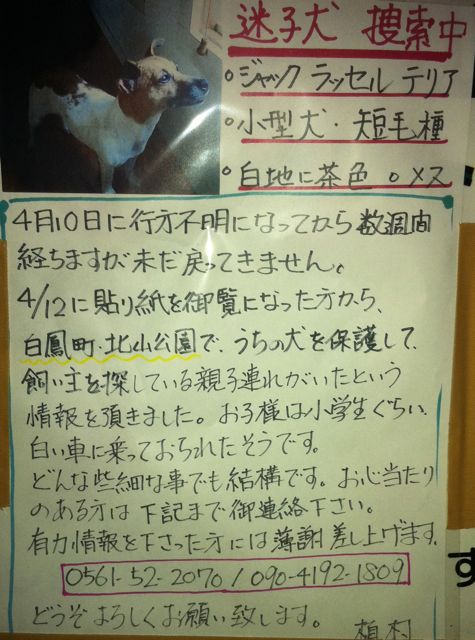 迷子犬 捜索中
○ジャック ラッセル テリア
○小型犬・短毛種
○白地に茶色 ○メス
4月10日に行方不明になってから 数週間
経ちますが未だ戻ってきません。
4/12に貼り紙を御覧になった方から、
白鳳町、北山公園で、うちの犬を保護して、
飼い主を探している親子連れがいたという
情報を頂きました。お子様は小学生ぐらい、
白い車に乗っておられたそうです。
どんな些細な事でも結構です。お心当たり
のある方は 下記まで御連絡下さい。
有力情報を下さった方には薄謝差し上げます。
0561-52-2070 / 090-4192-1809
どうぞよろしくお願い致します。
植村
す